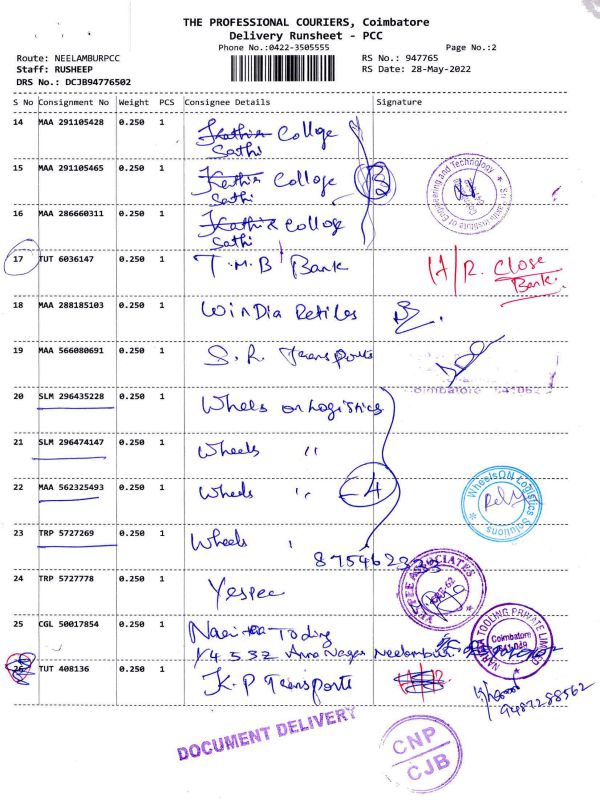 THE PROFESSIONAL COURIERS, Coimbatore
Delivery Runsheet - PCC
Phone No.:0422-3505555
Page No.:2
Route: NEELAMBURPCC
Staff: RUSHEEP
DRS No.: DCJB94776502
RS No.: 947765
RS Date: 28-May-2022
S No Consignment No Weight PCS Consignee Details Signature
14 MAA 291105428 0.250 1 Kathir College
Sathi
15 MAA 291105465 0.250 1 Kathir College
Sathi
16 MAA 286660311 0.250 1 Kathir College
Sathi
17 TUT 6036147 0.250 1 T.M.B Bank
R. Close
Bank.
18 MAA 288185103 0.250 1 WinDia Retiles
19 MAA 566080691 0.250 1 S.R. Transports
Coimbatore 641062
20 SLM 296435228 0.250 1 Wheels on Logistics
21 SLM 296474147 0.250 1 Wheels "
22 MAA 562325493 0.250 1 Wheels " 4
WheelsON Logistics Solutions
Rely
23 TRP 5727269 0.250 1 Wheels "
8754623
24 TRP 5727778 0.250 1 Yespee
25 CGL 50017854 0.250 1 Tooling
Anna Nagar Neelambur
TOOLING PRIVATE LIMITED
Coimbatore
26 TUT 408136 0.250 1 K.P Transports
9487288562
DOCUMENT DELIVERY
CNP
CJB